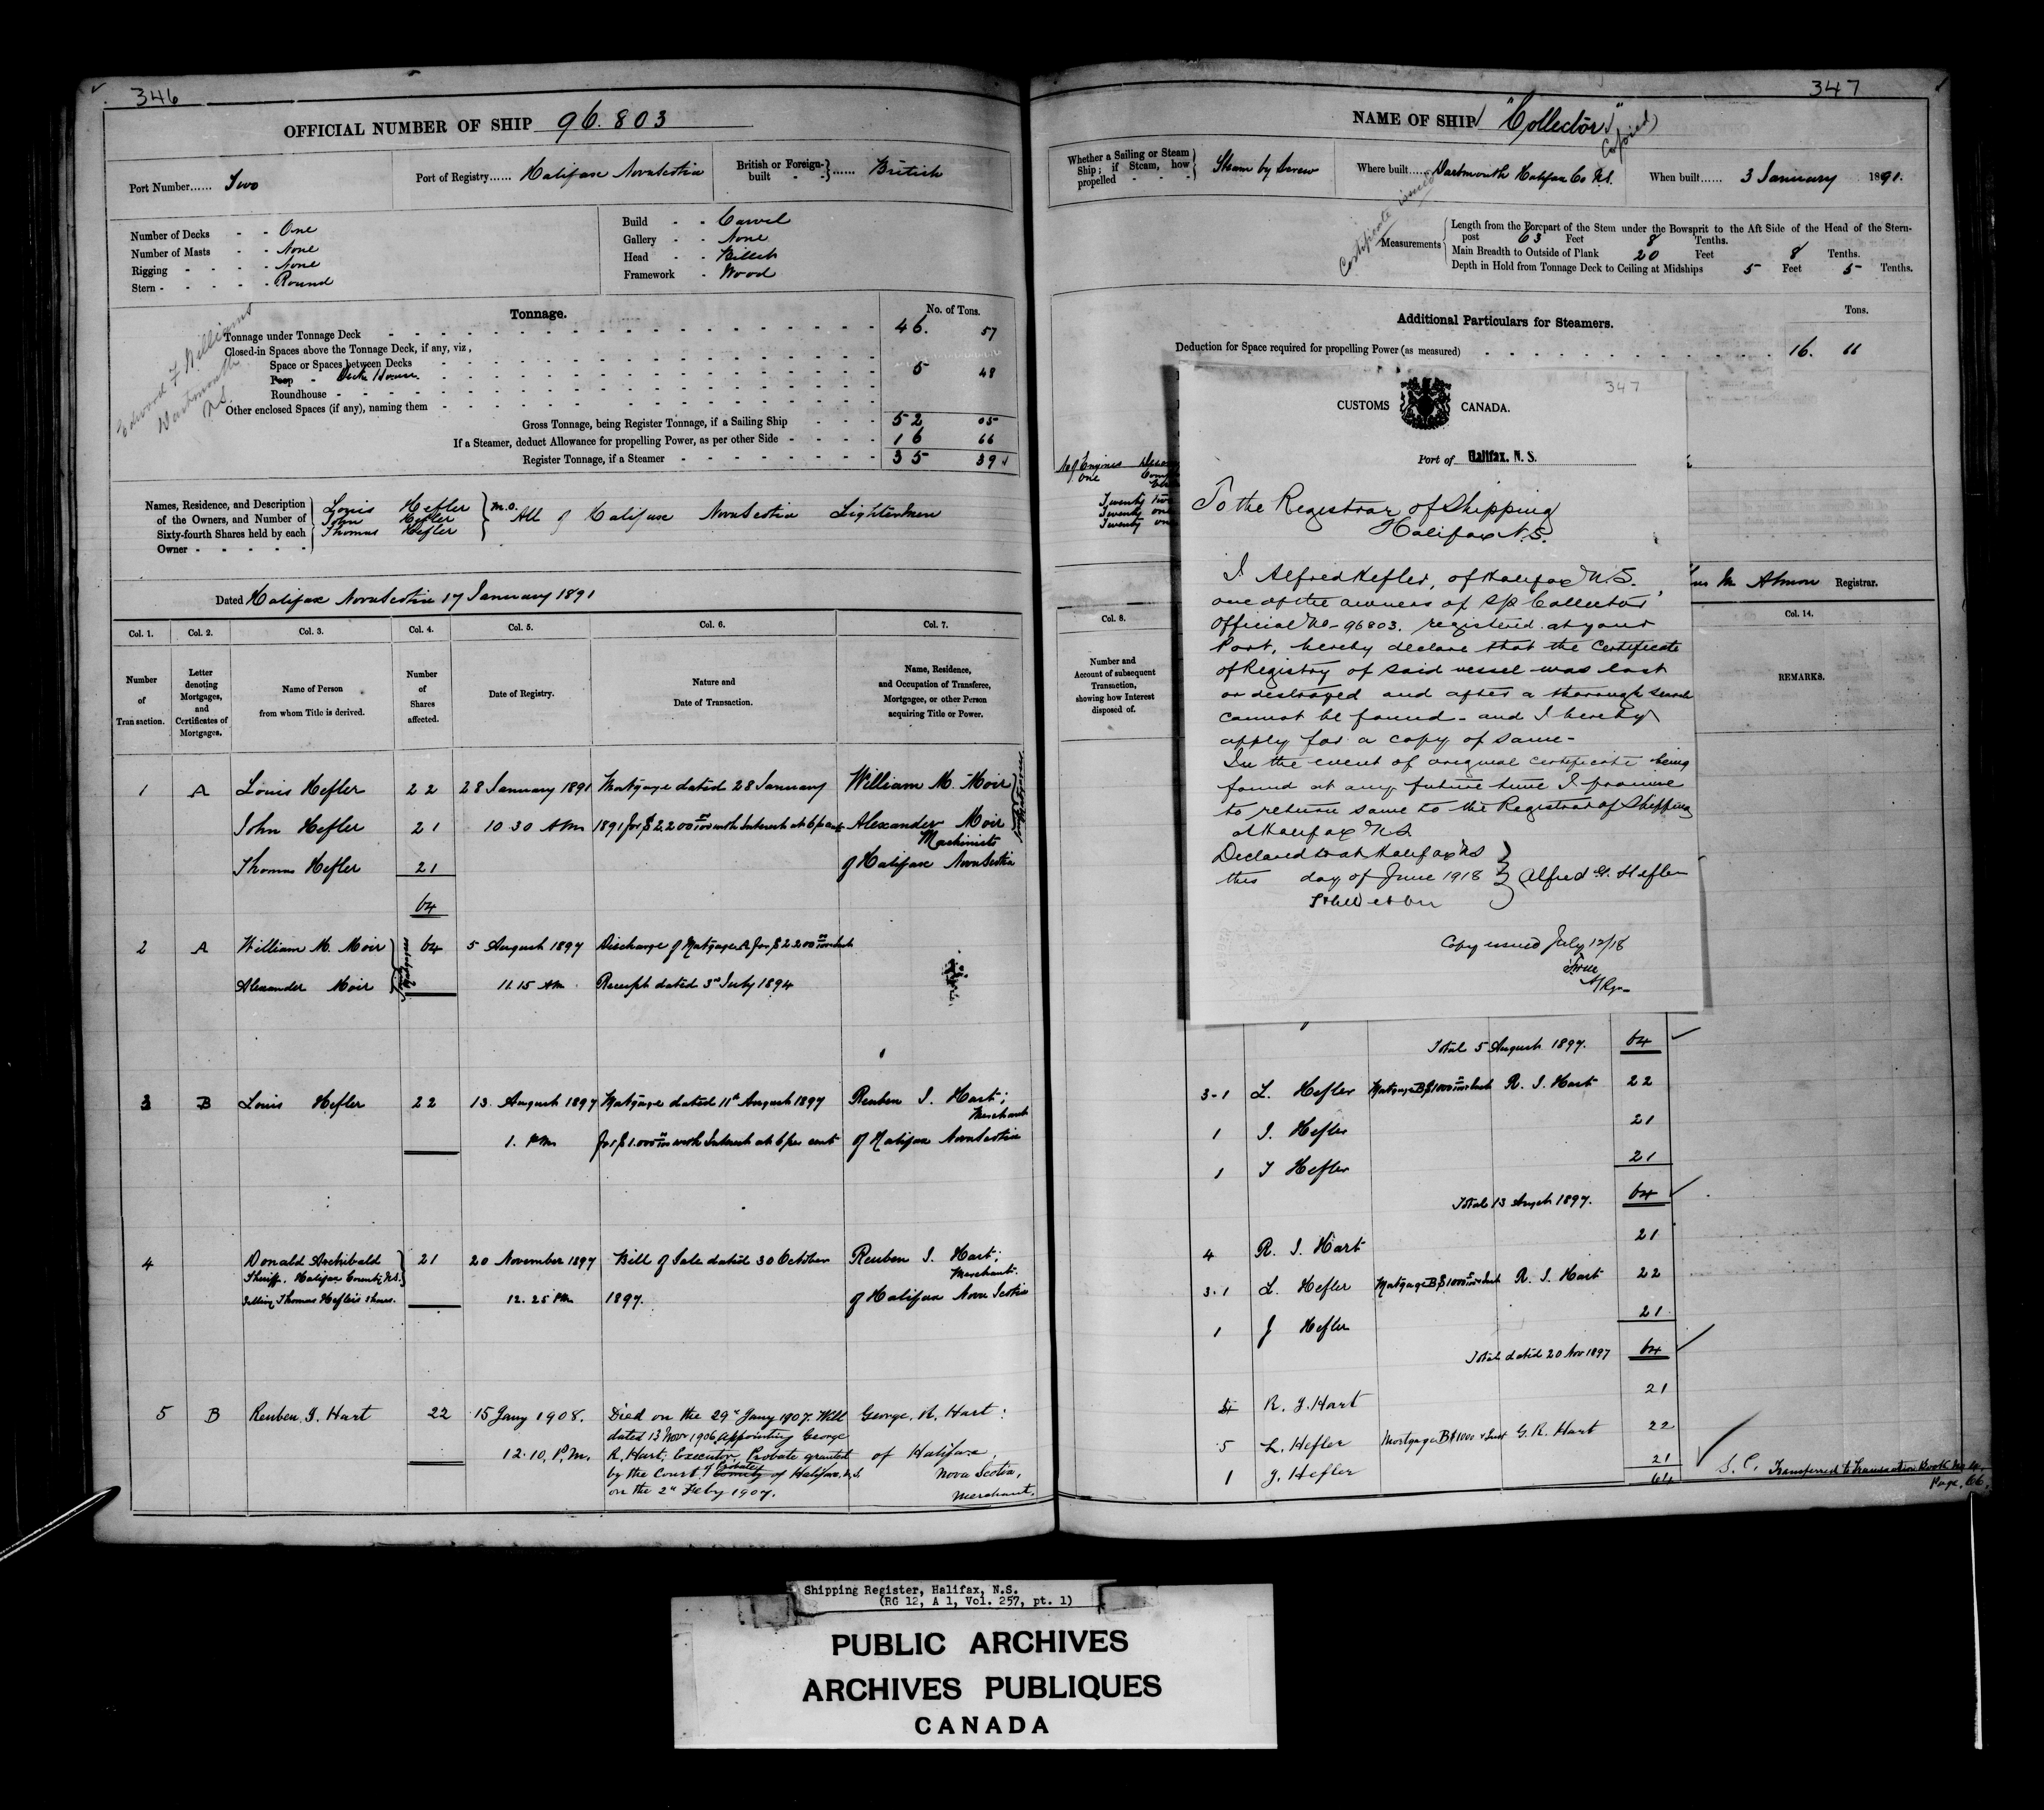 346
OFFICIAL NUMBER OF SHIP 96.803
Port Number...... Two
Port of Registry...... Halifax Nova Scotia
British or Foreign-built ...... British
Number of Decks - - One
Number of Masts - - None
Rigging - - - - None
Stern - - - - - Round
Build - - Carvel
Gallery - - None
Head - - Billet
Framework - Wood
Edward F Williams
Dartmouth
N.S.
Tonnage.
No. of Tons.
Tonnage under Tonnage Deck 46. 57
Closed-in Spaces above the Tonnage Deck, if any, viz.,
Space or Spaces between Decks
Poop - Deck House. 5 48
Roundhouse
Other enclosed Spaces (if any), naming them
Gross Tonnage, being Register Tonnage, if a Sailing Ship 52 05
If a Steamer, deduct Allowance for propelling Power, as per other Side 16 66
Register Tonnage, if a Steamer 35 39
Names, Residence, and Description
of the Owners, and Number of
Sixty-fourth Shares held by each
Owner - - - - -
Louis Hefler
John Hefler
Thomas Hefler
M.O. All of Halifax Nova Scotia Lightermen
Dated Halifax Nova Scotia 17 January 1891
Col. 1. Col. 2. Col. 3. Col. 4. Col. 5. Col. 6. Col. 7.
Number of Transaction.
Letter denoting Mortgages, and Certificates of Mortgages.
Name of Person from whom Title is derived.
Number of Shares affected.
Date of Registry.
Nature and Date of Transaction.
Name, Residence, and Occupation of Transferee, Mortgagee, or other Person acquiring Title or Power.
1 A Louis Hefler 22 28 January 1891 Mortgage dated 28 January William M. Moir
John Hefler 21 10.30 AM 1891 for $2,200 00/100 with Interest at 6 p cent Alexander Moir
Machinists
Joint Mortgagees
Thomas Hefler 21 of Halifax Nova Scotia
64
2 A William M. Moir 64 5 August 1897 Discharge of Mortgage A for $2200 00/100
Joint Mortgagees
Alexander Moir 11.15 AM Receipt dated 3rd July 1894
3 B Louis Hefler 22 13 August 1897 Mortgage dated 11th August 1897 Reuben I. Hart;
Merchant
1. PM for $1.000 00/100 with Interest at 6 per cent of Halifax Nova Scotia
4 Donald Archibald 21 20 November 1897 Bill of Sale dated 30 October Reuben I. Hart;
Sheriff, Halifax County, N.S. Merchant.
Selling Thomas Hefler's shares. 12.25 PM 1897. of Halifax Nova Scotia
5 B Reuben I. Hart 22 15 Jany 1908. Died on the 29th Jany 1907. Will George R. Hart:
dated 13 Novr 1906 appointing George
12.10. P.M. R. Hart, Executor, Probate granted of Halifax,
by the Court of Probate County of Halifax, N.S. Nova Scotia,
on the 2nd Feby 1907. Merchant.
347
NAME OF SHIP "Collector"
Certificate issued (Copied)
Whether a Sailing or Steam Ship; if Steam, how propelled - - - Steam by Screw
Where built...... Dartmouth Halifax Co N.S.
When built...... 3 January 1891.
Measurements
Length from the Forepart of the Stem under the Bowsprit to the Aft Side of the Head of the Stern-
post 63 Feet 8 Tenths.
Main Breadth to Outside of Plank 20 Feet 8 Tenths.
Depth in Hold from Tonnage Deck to Ceiling at Midships 5 Feet 5 Tenths.
Additional Particulars for Steamers.
Tons.
Deduction for Space required for propelling Power (as measured) 16. 66
No of Engines
One
Twenty two
Twenty one
Twenty one
347
CUSTOMS CANADA.
Port of Halifax, N. S.
To the Registrar of Shipping
Halifax N.S.
I Alfred Hefler, of Halifax N.S.
one of the owners of S/S Collector
Official No - 96803. registered at your
Port, hereby declare that the Certificate
of Registry of said vessel was lost
or destroyed and after a thorough search
cannot be found - and I hereby
apply for a copy of same -
In the event of original certificate being
found at any future time I promise
to return same to the Registrar of Shipping
at Halifax N.S
Declared to at Halifax NS
this day of June 1918 Alfred G. Hefler
Copy issued July 12/18
M Almon Registrar.
Col. 8. Col. 14.
Number and Account of subsequent Transaction, showing how Interest disposed of.
REMARKS.
Total 5 August 1897. 64
3-1 L. Hefler Mortgage B $1000 00/100 & Int R. I. Hart 22
1 J. Hefler 21
1 T Hefler 21
Total 13 Augst 1897. 64
4 R. I. Hart 21
3-1 L. Hefler Mortgage B $1000 00/100 & Int R. I. Hart 22
1 J Hefler 21
Total dated 20 Nov 1897 64
4 R. I. Hart 21
5 L. Hefler Mortgage B $1000 & Int G. R. Hart 22
1 J. Hefler 21
64
S.C. Transferred to Transaction Book No 4,
Page, 66,
Shipping Register, Halifax, N.S.
(RG 12, A 1, Vol. 257, pt. 1)
PUBLIC ARCHIVES
ARCHIVES PUBLIQUES
CANADA